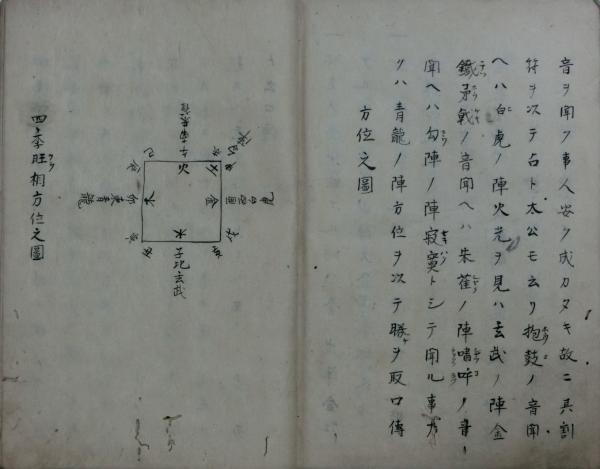 音ヲ聞ク事人安ク成カタキ故ニ其割
符ヲ以テ占ト太公モ云リ抱鼓ノ音聞
ヘハ白虎ノ陣火光ヲ見ハ玄武ノ陣金
鐵矛戟ノ音聞ヘハ朱雀ノ陣嘯呼ノ音
聞ヘハ勾陣ノ陣寂寞トシテ聞ル事
クハ青龍ノ陣方位ヲ以テ勝ヲ取口傳
方位之圖
午南朱雀
火
金
酉西白虎
木
卯東青龍
水
子北玄武
四季旺相方位之圖